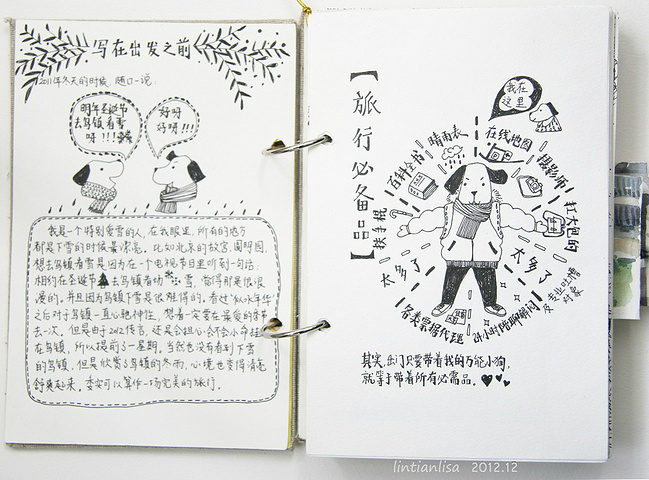 写在出发之前
2011年冬天的时候,随口一说:
明年圣诞节
去乌镇看雪
呀!!!
好呀
好呀!!!
我是一个特别爱雪的人,在我眼里,所有的地方
都是下雪的时候最漂亮。比如北京的故宫、圆明园。
想去乌镇看雪是因为在一个电视节目里听到一句话:
相约在圣诞去乌镇看初雪,觉得那是很浪
漫的。并且因为乌镇下雪是很难得的。看过《似水年华》
之后对乌镇一直心驰神往,想着一定要在最爱的季节
去一次。但是由于2012传言,还是会担心会不会小命挂
在乌镇,所以提前了一星期。当然也没有看到下雪
的乌镇,但是欣赏了乌镇的冬雨,心境也变得清澈
舒爽起来。委实可以算作一场完美的旅行。
【旅行必备品】
我在
这里
晴雨表
在线地图
百科全书
摄影师
扶手棍
扛大包的
太多了
太多了
专业吐槽
及对象
各类票据代理
24小时陪聊顾问
其实,出门只要带着我的万能小狗,
就等于带着所有必需品。
lintianlisa 2012.12